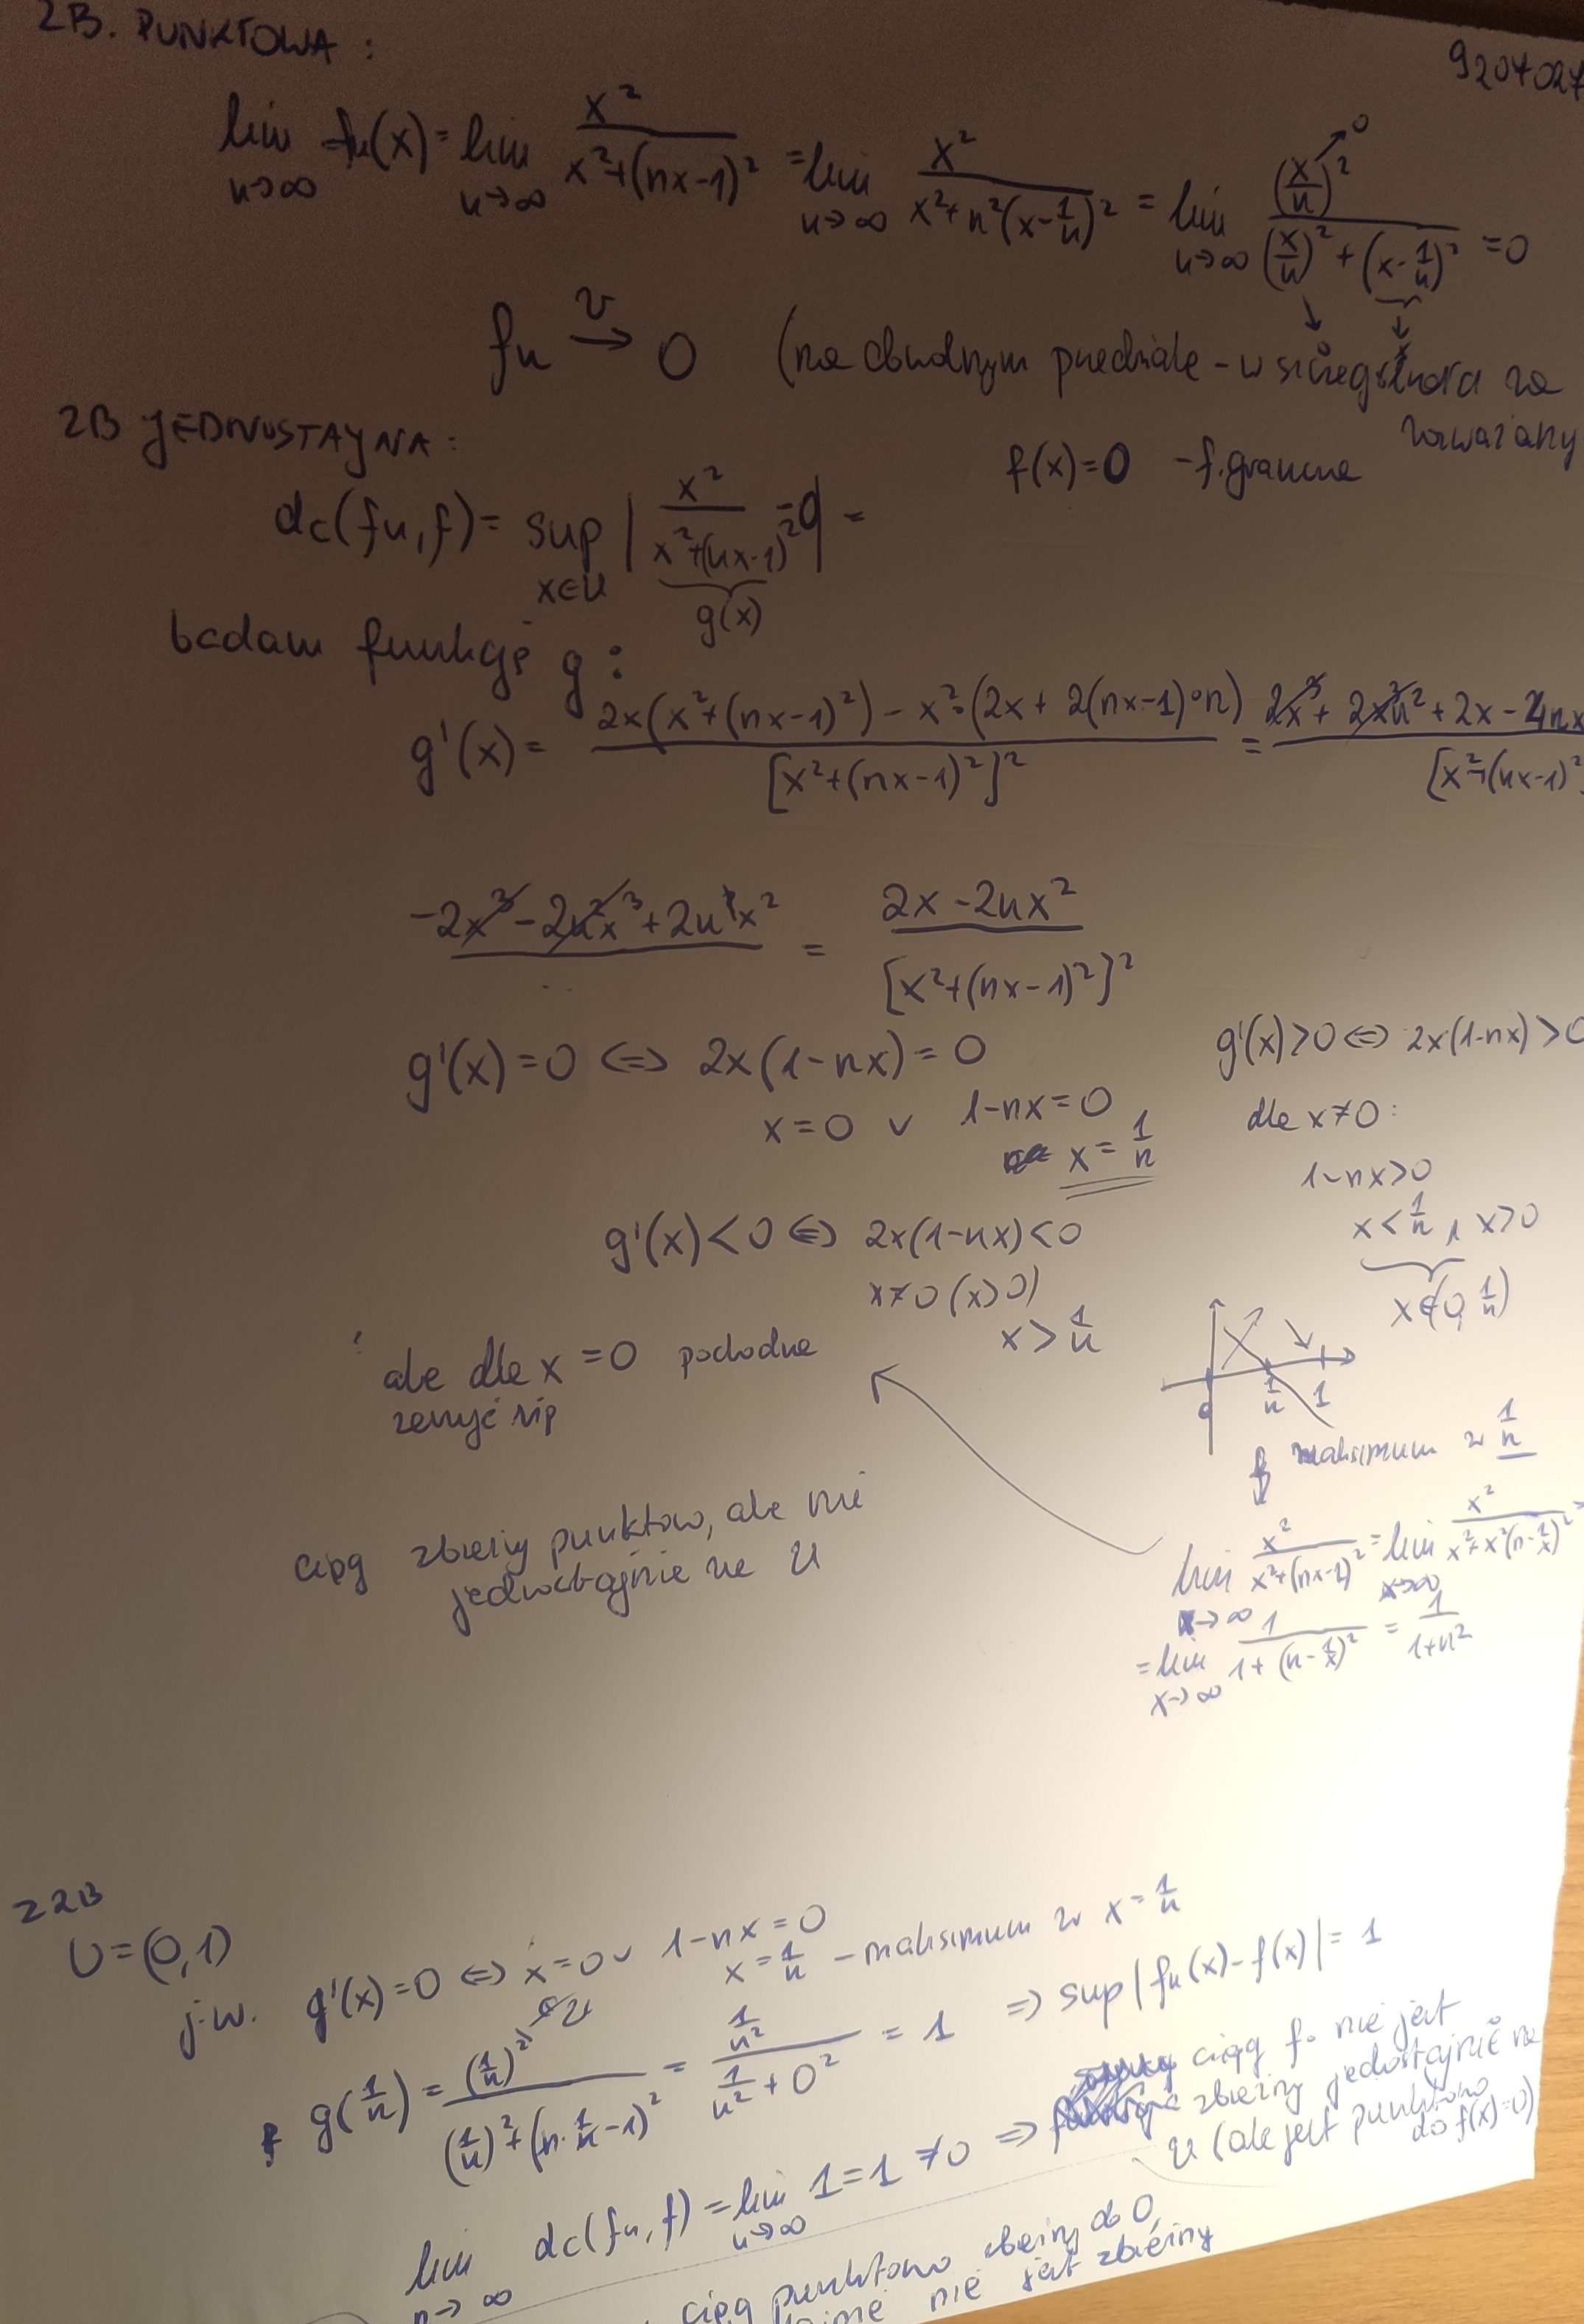 2B. PUNKTOWA:
9207027
lim n→∞ fn(x) = lim n→∞ x²/(x²+(nx-1)²) = lim n→∞ x²/(x²+n²(x-1/n)²) = lim n→∞ (x/n)²/((x/n)²+(x-1/n)²) = 0
fn →^U 0 (na dowolnym przedziale - w szczególności na
rozważany
2B JEDNOSTAJNA:
f(x)=0 - f. graniczna
dc(fn,f) = sup x∈U |x²/(x²+(nx-1)²) - 0| =
g(x)
badam funkcję g:
g'(x) = (2x(x²+(nx-1)²) - x²·(2x+2(nx-1)·n))/[x²+(nx-1)²]² = (2x³ + 2x³n² + 2x - 4nx)/[x²+(nx-1)²]
(-2x³ - 2n²x³ + 2nx²)/.. = (2x-2nx²)/[x²+(nx-1)²]²
g'(x)=0 ⇔ 2x(1-nx)=0
x=0 ∨ 1-nx=0
x = 1/n
g'(x)>0 ⇔ 2x(1-nx)>0
dla x≠0:
1-nx>0
x<1/n, x>0
x∈(0,1/n)
g'(x)<0 ⇔ 2x(1-nx)<0
x≠0 (x>0)
x>1/n
ale dla x=0 pochodna
zeruje się
0 1/n 1
maksimum w 1/n
lim x→∞ x²/(x²+(nx-1)²) = lim x→∞ x²/(x²+x²(n-1/x)²) =
= lim x→∞ 1/(1+(n-1/x)²) = 1/(1+n²)
ciąg zbieżny punktow, ale nie
jednostajnie na U
Z2B
U=(0,1)
j.w. g'(x)=0 ⇔ x=0 ∨ 1-nx=0
∉U
x=1/n - maksimum w x=1/n
g(1/n) = (1/n)²/((1/n)²+(n·1/n-1)²) = (1/n²)/(1/n²+0²) = 1 ⇒ sup|fn(x)-f(x)|=1
lim n→∞ dc(fn,f) = lim n→∞ 1=1≠0 ⇒ ciąg f. nie jest
zbieżny jednostajnie na
U (ale jest punktowo
do f(x)=0)
ciąg punktowo zbieżny do 0,
nie jest zbieżny